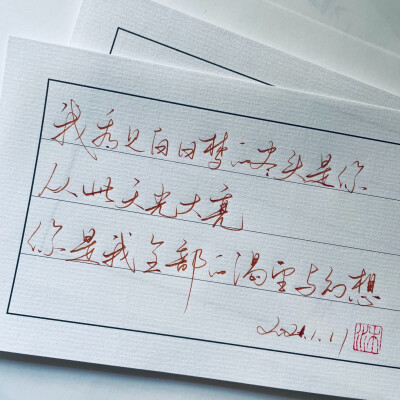 我看见白日梦的尽头是你
从此天光大亮
你是我全部的渴望与幻想
2021.1.11